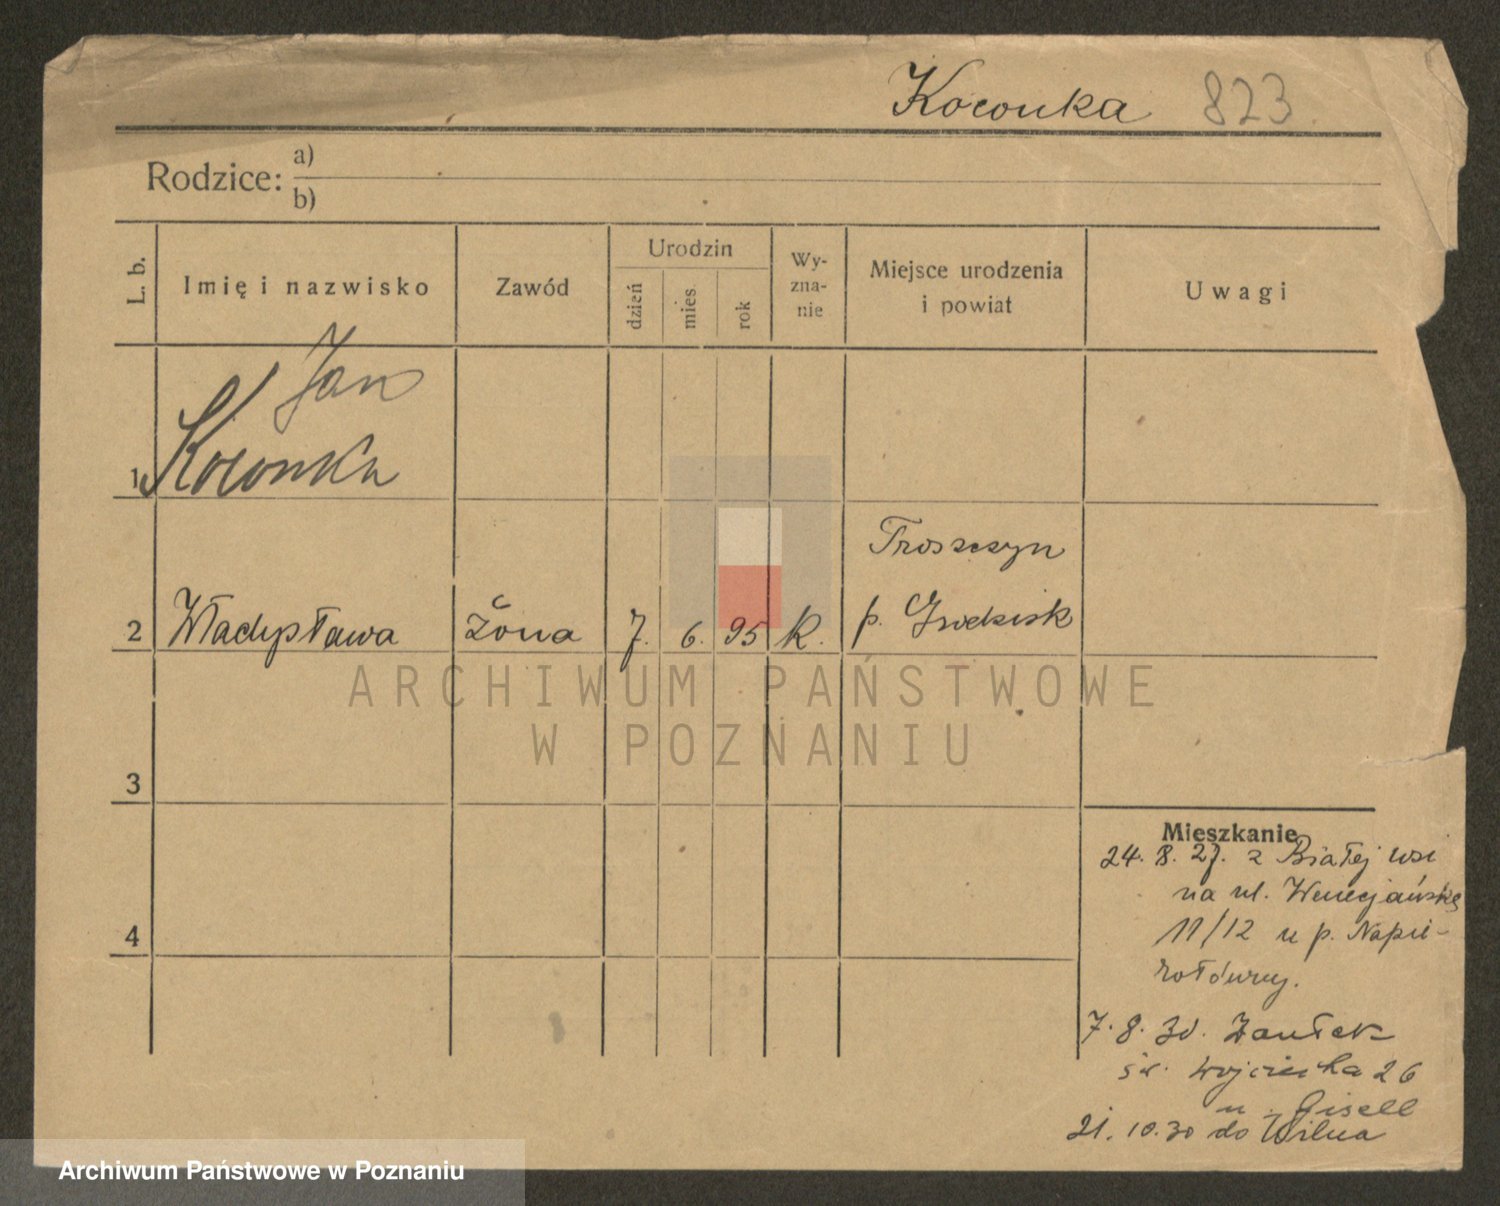 Koconka 823
Rodzice: a)
b)
L. b.
Imię i nazwisko
Zawód
Urodzin
dzień
mies.
rok
Wy-
zna-
nie
Miejsce urodzenia
i powiat
Uwagi
Jan
1 Koconka
Troszczyn
2 Władysława żona 7. 6. 95 K. p. Grodzisk
ARCHIWUM PAŃSTWOWE
W POZNANIU
3
Mieszkanie
24. 8. 27. z Białej wsi
na ul. Wenecjańską
4
11/12 u p. Napie-
rołówny.
7. 8. 30. Zaułek
św. Wojciecha 26
u. Gisell
21. 10. 30 do Wilna
Archiwum Państwowe w Poznaniu